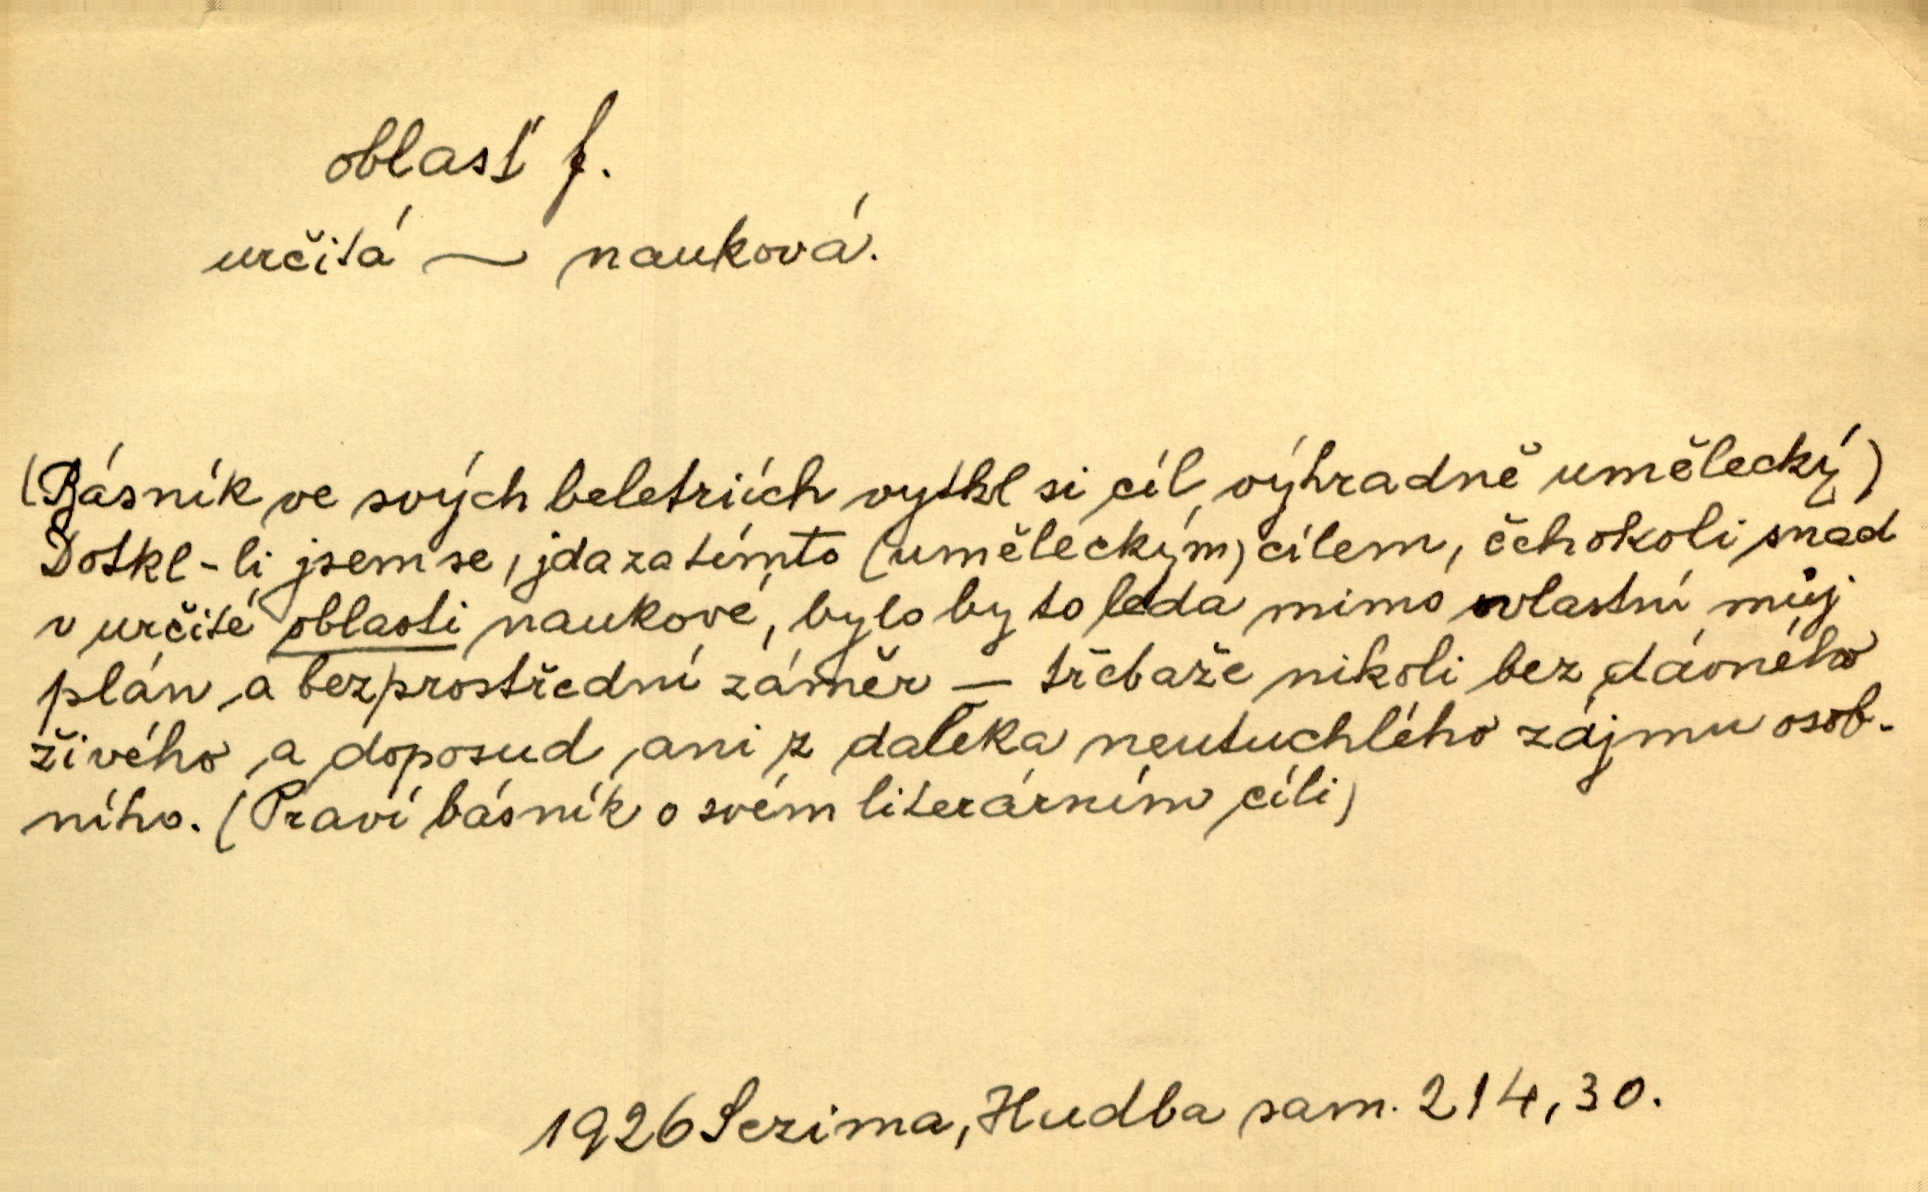 oblasť f.
určitá ~ nauková.
(Básník ve svých beletriích vytkl si cíl výhradně umělecký)
Dotkl-li jsem se, jda za tímto (uměleckým) cílem, čehokoli snad
v určité oblasti naukové, bylo by to leda mimo vlastní můj
plán a bezprostřední záměr — třebaže nikoli bez dávného
živého a doposud ani z daleka neutuchlého zájmu osob-
ního. (Praví básník o svém literárním cíli)
1926 Sezima, Hudba sam. 214, 30.